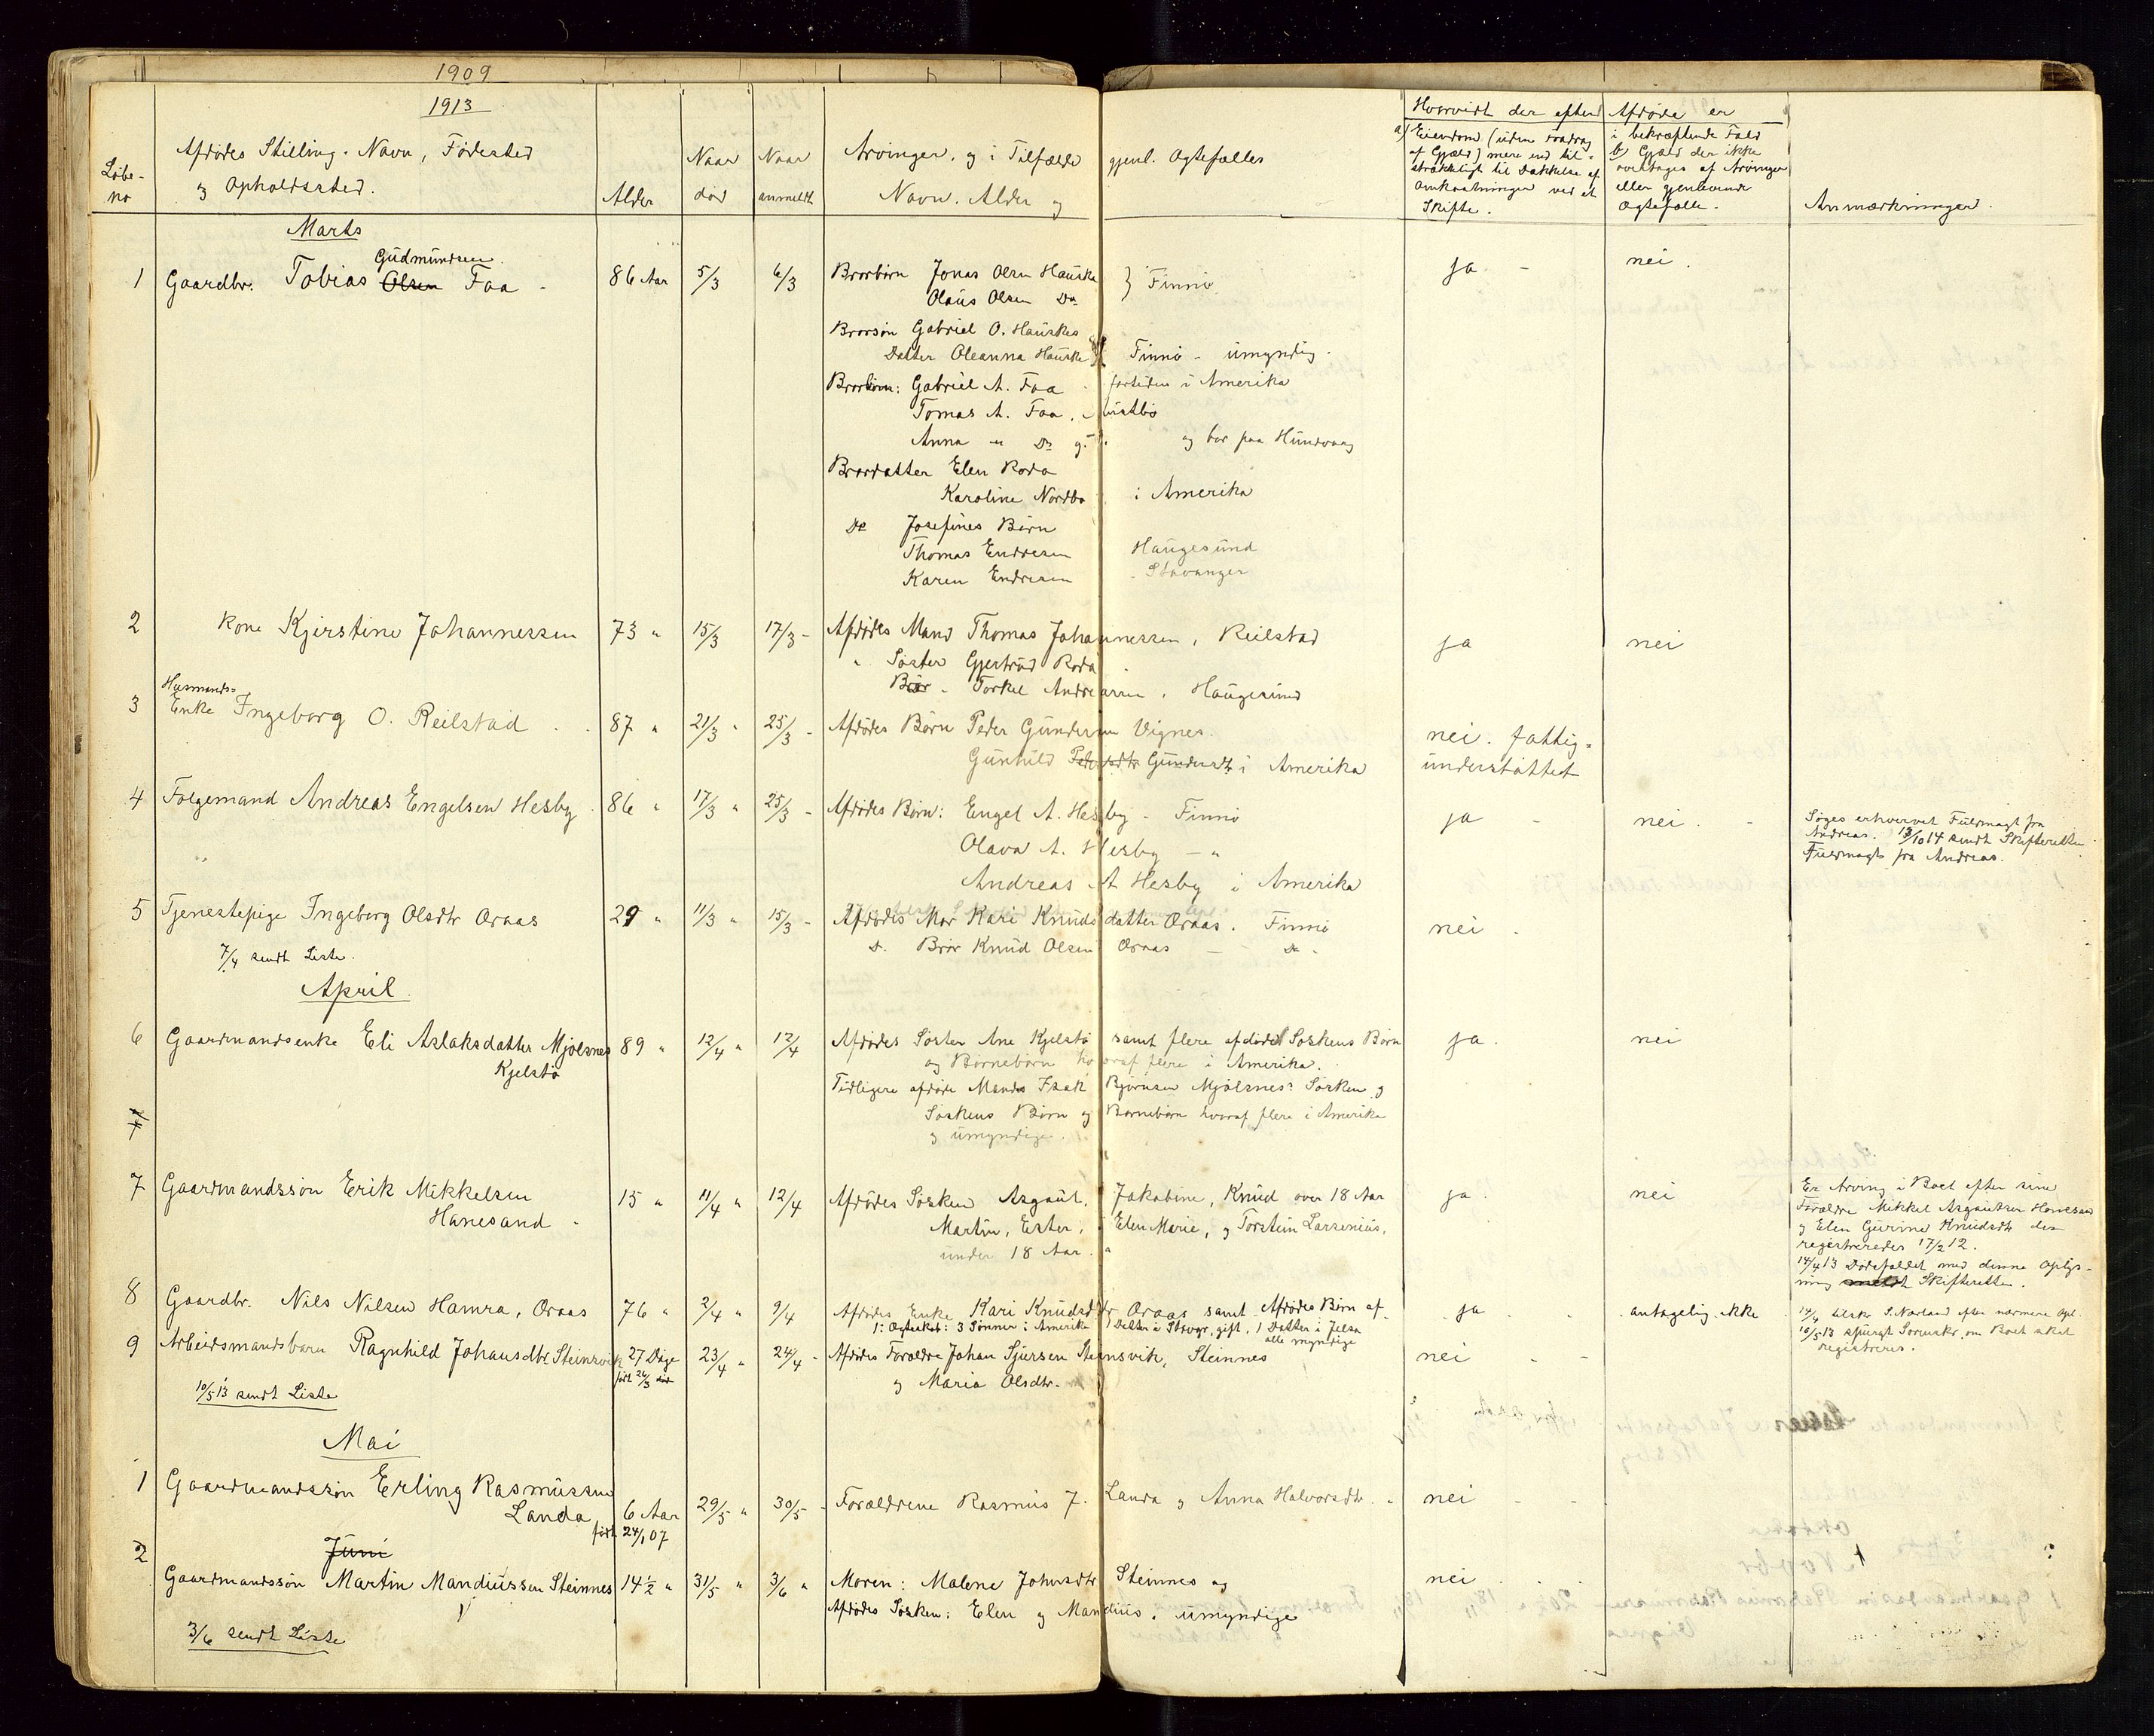 1909
1913
Løbe-
no
Afdødes Stilling. Navn, Fødested
og Opholdssted.
Alder
Naar
død
Naar
anmeldt
Arvinger, og i Tilfælde gjenl. Ægtefælles
Navn. Alder og
Hvorvidt der efter Afdøde er
a) Eiendom (uden Fradrag
af Gjæld) mere end til-
strækkeligt til Dækkelse af
Omkostninger ved et
Skifte.
i bekræftende Fald
b) Gjæld der ikke
overtages af Arvinger
eller gjenlevende
Ægtefælle.
Anmærkninger.
Marts
Gudmundsen
1 Gaardbr. Tobias Olsen Faa - 86 Aar 5/3 6/3 Brorbørn Jonas Olsen Hauske } Finnø ja - nei.
Olaus Olsen Do
Brorsøn Gabriel O. Hauskes
Datter Oleanna Hauske Finnø - umyndig.
Brorbørn: Gabriel A. Faa - fortiden i Amerika
Tomas A. Faa,
Anna " Do g. og bor paa Hundvaag
Brordatter Elen Roda
Karoline Nordbø i Amerika
Do Josefines Børn
Thomas Endresen Haugesund
Karen Endresen - Stavanger
2 Kone Kjerstine Johannessen 73 " 15/3 17/3 - Afdødes Mand Thomas Johannessen, Reilstad ja nei
" Søster Gjertrud Roda
Bror - Torkel Andreassen, Haugesund
Husmands-
3 Enke Ingeborg O. Reilstad 87 " 21/3 " 25/3 - Afdødes Børn Peder Gundersen Vignes. nei. fattig-
Gunhild Pedersdtr Gundersdtr i Amerika understøttet
4 Følgemand Andreas Engelsen Hesby 86 " 17/3 " 25/3 - Afdødes Børn: Engel A. Hesby - Finnø ja - nei. -
Olava A. Hesby - "
Andreas A Hesby i Amerika
Søges erhvervet Fuldmagt fra
Andreas. 13/10 14 sendt Skifteretten
Fuldmagt fra Andreas.
5 Tjenestepige Ingeborg Olsdtr Øraas 29 " 11/3 " 15/3 - Afdødes Mor Kari Knudsdatter Øraas. Finnø nei.
D. Bror Knud Olsen Øraas - Do.
7/4 sendt Liste.
April
6 Gaardmandsenke Eli Aslaksdatter Mjølsnes 89 " 12/4 " 12/4 Afdødes Søster Ane Kjelstø samt flere afdøde Søskens Børn ja. nei
Kjelstø og Børnebørn hvoraf flere i Amerika.
Tidligere afdøde Mands Isak Bjørnsen Mjølsnes' Søsken og
Søskens Børn og Børnebørn hvoraf flere i Amerika
og umyndige.
7
7 Gaardmandssøn Erik Mikkelsen 15 " 11/4 " 12/4 Afdødes Søsken Asgaut, Jakobine, Knud over 18 Aar ja. nei
Hanesand - Martin, Ester, Elen Marie, og Torstein Larsenius,
under 18 Aar.
Er Arving i Boet efter sine
Forældre Mikkel Asgautsen Hanesand
og Elen Gurine Knudsdtr der
registreredes 17/2 12.
14/4 13 Dødsfaldet med denne Oplys-
ning meldt Skifteretten.
8 Gaardbr. Nils Nilsen Hamra, Øraas 76 " 2/4 " 9/4 Afdødes Enke Kari Knudsdtr Øraas samt Afdødes Børn af ja - antagelig ikke
1: Ægteskab: 3 Sønner i Amerika 1 Datter i Stavgr, gift, 1 Datter i Jelsa
alle myndige
14/4 tilskr S. Nørland efter nærmere Opl.
10/5 13 spurgt Sorenskr. om Boet skal
registreres.
9 Arbeidsmandsbarn Ragnhild Johansdtr Steinsvik 27 Dage 23/4 " 24/4 - Afdødes Forældre Johan Sjursen Steinsvik, Steinnes nei - -
født 26/3
og Maria Olsdtr.
10/5 13 sendt Liste
Mai
1 Gaardmandssøn Erling Rasmussen
Landa 6 Aar 29/5 " 30/5 - Forældrene Rasmus T. Landa og Anna Halvorsdtr. nei - -
født 24/1 07
Juni
2 Gaardmandssøn Martin Mandiussen Steinnes 14½ " 31/5 " 3/6 " Moren: Malene Johnsdtr Steinnes og nei
Afdødes Søsken: Elen og Mandius. umyndige
3/6 sendt Liste